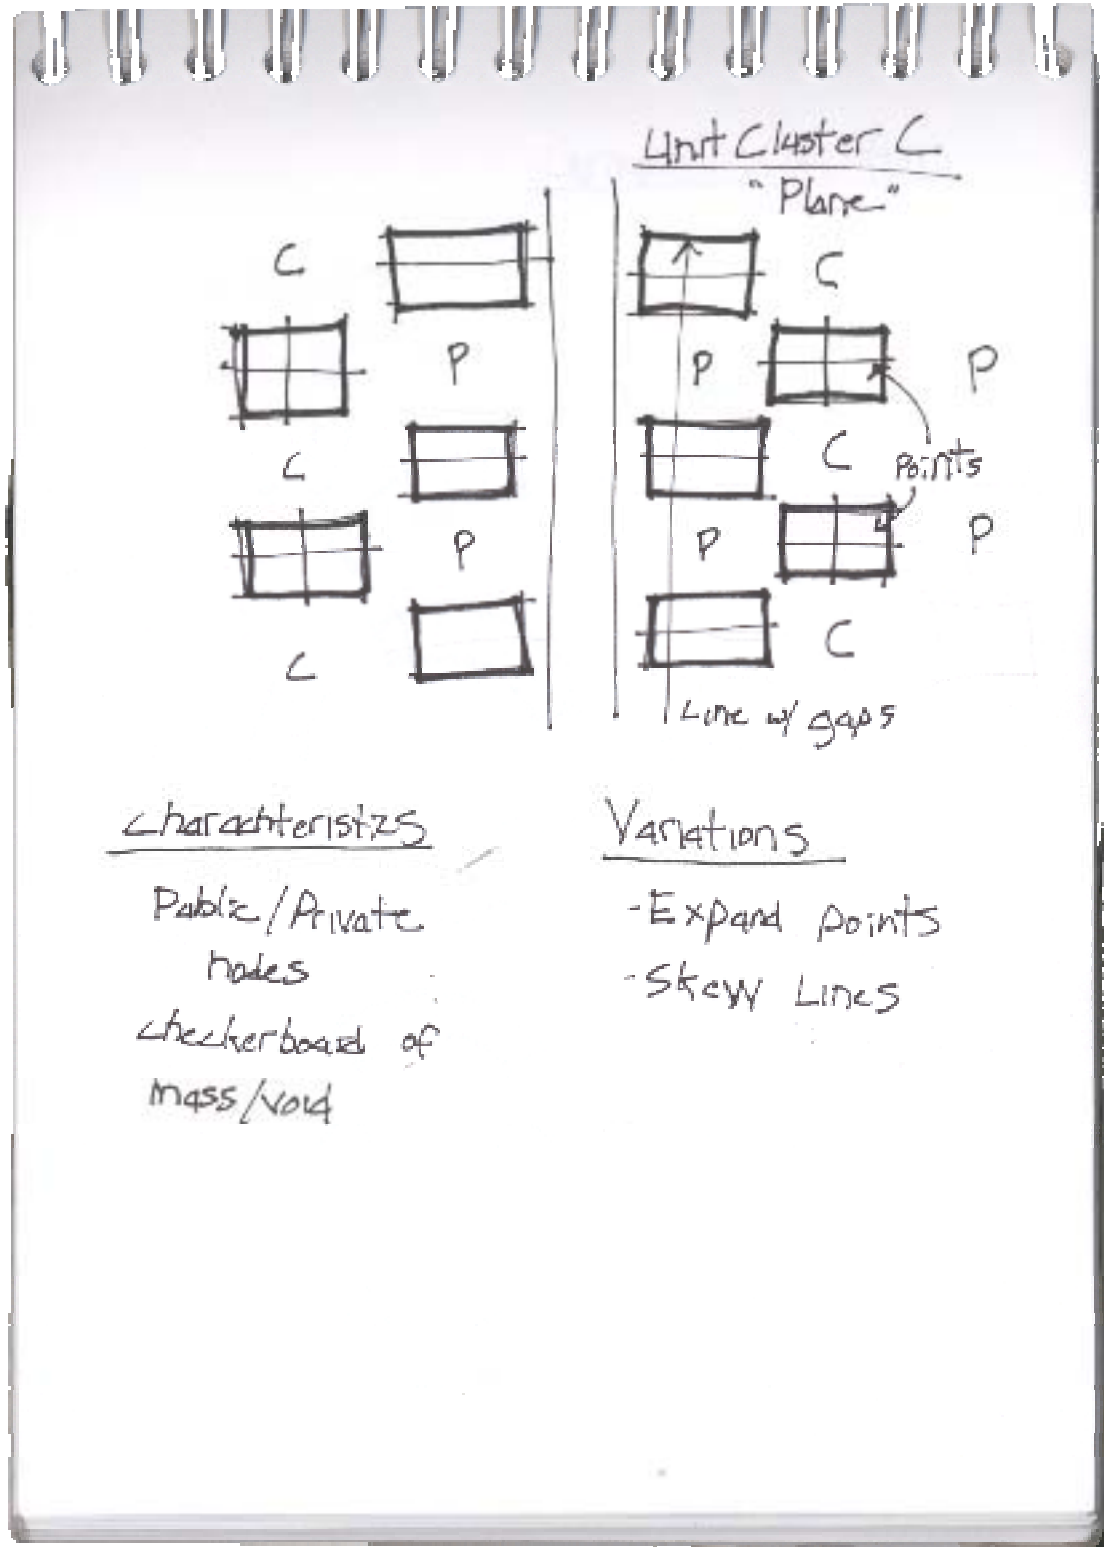 Unit Cluster C
"Plane"
C C
P P P
C C Points
P P P
C C
Line w/ gaps
Charachteristics
Public/Private
nodes
checkerboard of
mass/void
Variations
-Expand points
-Skew Lines